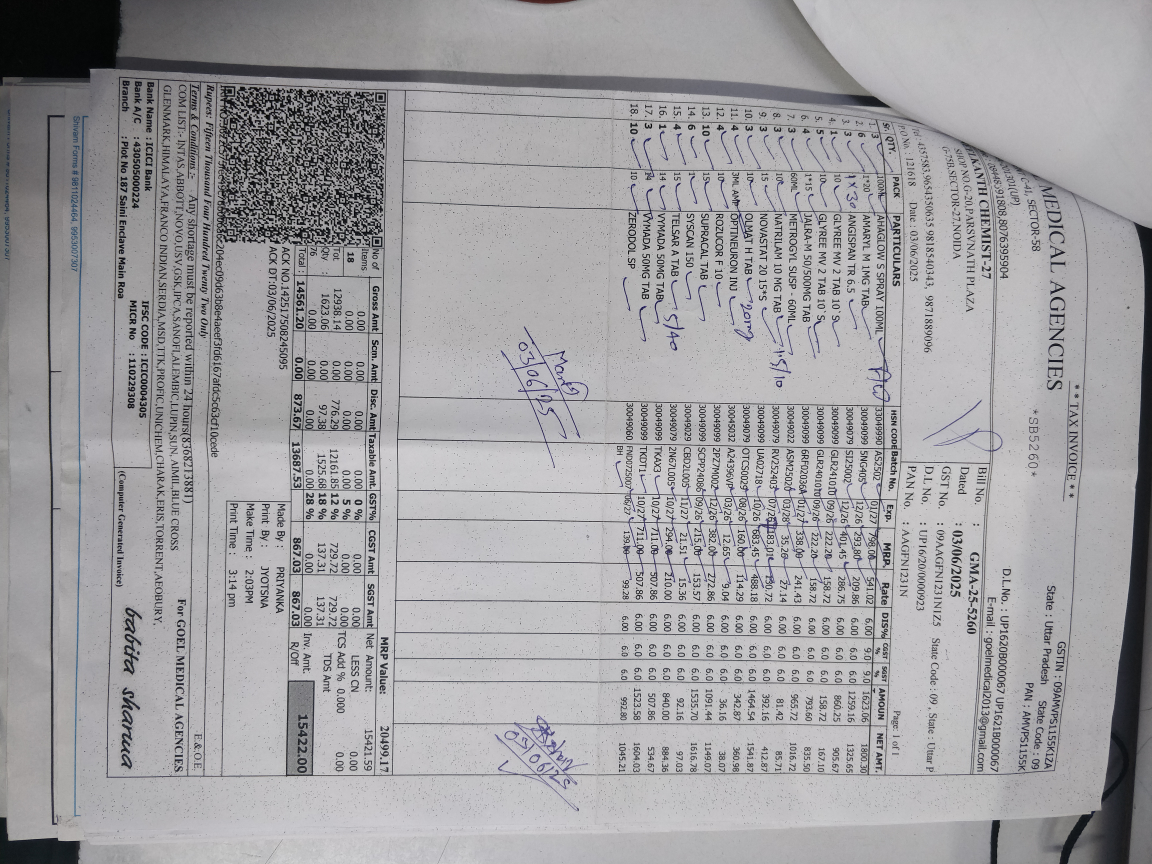 ** TAX INVOICE **
*SB5260*
GSTIN : 09AMVPS1155K1ZA
State : Uttar Pradesh State Code : 09
PAN : AMVPS1155K
MEDICAL AGENCIES
SECTOR-58
D.L.No. : UP1620B000067 UP1621B000067
E-mail : goelmedical2013@gmail.com
KANTH CHEMIST-27
SHOP NO.G-20,PARSVNATH PLAZA
G-25B,SECTOR-27,NOIDA
Bill No. : GMA-25-5260
Dated : 03/06/2025
GST No. : 09AAGFN1231N1Z5 State Code : 09 , State : Uttar P
D.L No. : UP16/20/0000923
PAN No. : AAGFN1231N
P.O NO. : 121618 Date : 03/06/2025
Page: 1 of 1
QTY. PACK PARTICULARS HSN CODE Batch No. Exp. MRP. Rate DIS% CGST % SGST % AMOUN NET AMT.
AHAGLOW S SPRAY 100ML 33049990 01/27 798.00 541.02 6.00 9.0 9.0 1623.06 1800.30
2. 6 1*20 AMARYL M 1MG TAB 30049099 5NG405 12/26 293.80 209.86 6.00 6.0 6.0 1259.16
3. 3 1x30 ANGISPAN TR 6.5 30049079 SI25002 12/26 401.45 286.75 6.00 6.0 6.0 860.25 905.67
4. 1 10 GLYREE MV 2 TAB 10'S 30049099 GLR24101D 09/26 222.20 158.72 6.00 6.0 6.0 158.72 167.10
5. 5 10 GLYREE MV 2 TAB 10'S 30049099 GLR24101D 09/26 222.20 158.72 6.00 6.0 6.0 793.60 835.50
6. 4 1*15 JALRA-M 50/500MG TAB 30049099 01/27 338.00 241.43 6.00 6.0 6.0 965.72 1016.72
7. 3 60ML METROGYL SUSP - 60ML 30049022 ASM25020 03/28 35.20 27.14 6.00 6.0 6.0 81.42 85.71
8. 3 10 NATRILAM 10 MG TAB 30049079 RV25Z403 130.72 6.00 6.0 6.0 392.16 412.87
9. 3 15 NOVASTAT 20 15*S 30049099 UA02718 10/26 683.45 488.18 6.00 6.0 6.0 1464.54 1541.87
10. 3 10 OLMAT H TAB 20mg 30049079 OTCS0029 08/26 160.00 114.29 6.00 6.0 6.0 342.87 360.98
11. 4 3ML AMP OPTINEURON INJ 30045032 A24396VP 03/26 12.65 9.04 6.00 6.0 6.0 36.16 38.07
12. 4 10 ROZUCOR F 10 30049079 2F27N002 12/26 382.00 272.86 6.00 6.0 6.0 1091.44 1149.07
13. 10 15 SUPRACAL TAB 30049099 SCPP24086 09/26 215.00 153.57 6.00 6.0 6.0 1535.70 1616.78
14. 6 SYSCAN 150 30049029 CBD2L005 11/27 21.51 15.36 6.00 6.0 6.0 92.16 97.03
15. 4 15 TELSAR A TAB 5/40 30049079 2N67L005 10/27 294.00 210.00 6.00 6.0 6.0 840.00 884.36
16. 1 14 VYMADA 50MG TAB 30049099 TKAX3 10/27 711.00 507.86 6.00 6.0 6.0 507.86 534.67
17. 3 14 VYMADA 50MG TAB 30049099 TKOT1 10/27 711.00 507.86 6.00 6.0 6.0 1523.58 1604.03
18. 10 10 ZERODOL SP 30049060 139.00 99.28 6.00 6.0 6.0 992.80 1045.21
03/06/25
03/06/25
MRP Value: 20499.17
No of Items Gross Amt Scm. Amt Disc. Amt Taxable Amt. GST% CGST Amt SGST Amt
18 0.00 0.00 0.00 0.00 0 % 0.00 0.00
0.00 0.00 0.00 0.00 5 % 0.00 0.00
Tot Qty : 12938.14 0.00 776.29 12161.85 12 % 729.72 729.72
1623.06 0.00 97.38 1525.68 18 % 137.31 137.31
76 0.00 0.00 0.00 0.00 28 % 0.00 0.00
Total : 14561.20 0.00 873.67 13687.53 867.03 867.03
Net Amount: 15421.59
LESS CN 0.00
TCS Add % 0.000 0.00
TDS Amt 0.00
R/Off
Inv. Amt. 15422.00
ACK NO.142517508245095
ACK DT:03/06/2025
Made By : PRIYANKA
Print By : JYOTSNA
Make Time : 2:03PM
Print Time : 3:14 pm
Rupees: Fifteen Thousand Four Hundred Twenty Two Only
E.& O.E.
Terms & Conditions :- Any shortage must be reported within 24 hours(8768213881)
For GOEL MEDICAL AGENCIES
COM LIST:- INTAS,ABBOTT,NOVO,USV,GSK,IPCA,SANOFI,ALEMBIC,LUPIN,SUN, AIMIL,BLUE CROSS
GLENMARK,HIMALAYA,FRANCO INDIAN,SERDIA,MSD,TTK,PROFIC,UNICHEM,CHARAK,ERIS,TORRENT,LEEFORD,BURY,
Bank Name : ICICI Bank IFSC CODE : ICIC0004305
Bank A/C : 430505000224 MICR No : 110229308
Branch : Plot No 187 Saini Enclave Main Roa
(Computer Generated Invoice)
babita sharwa
Shivam Forms # 9811024464, 9953007307